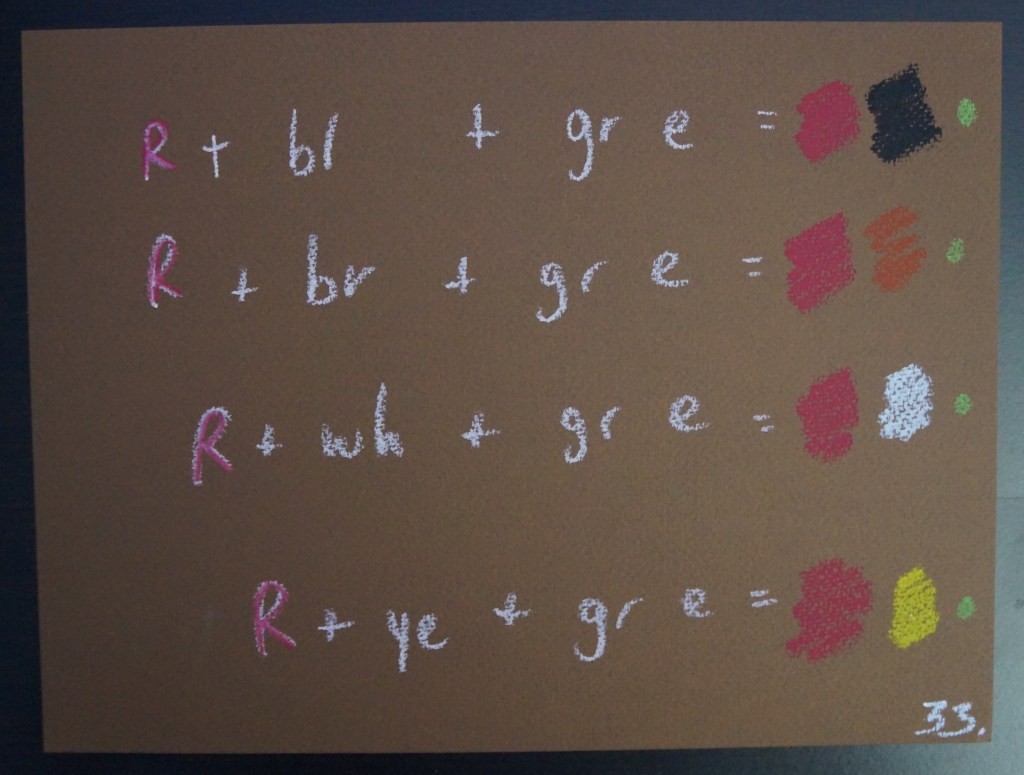 R + bl + gr e =
R + br + gr e =
R + wh + gr e =
R + ye + gr e =
33.